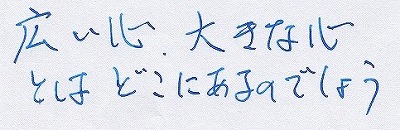 広い心、大きな心
とは どこにあるのでしょう